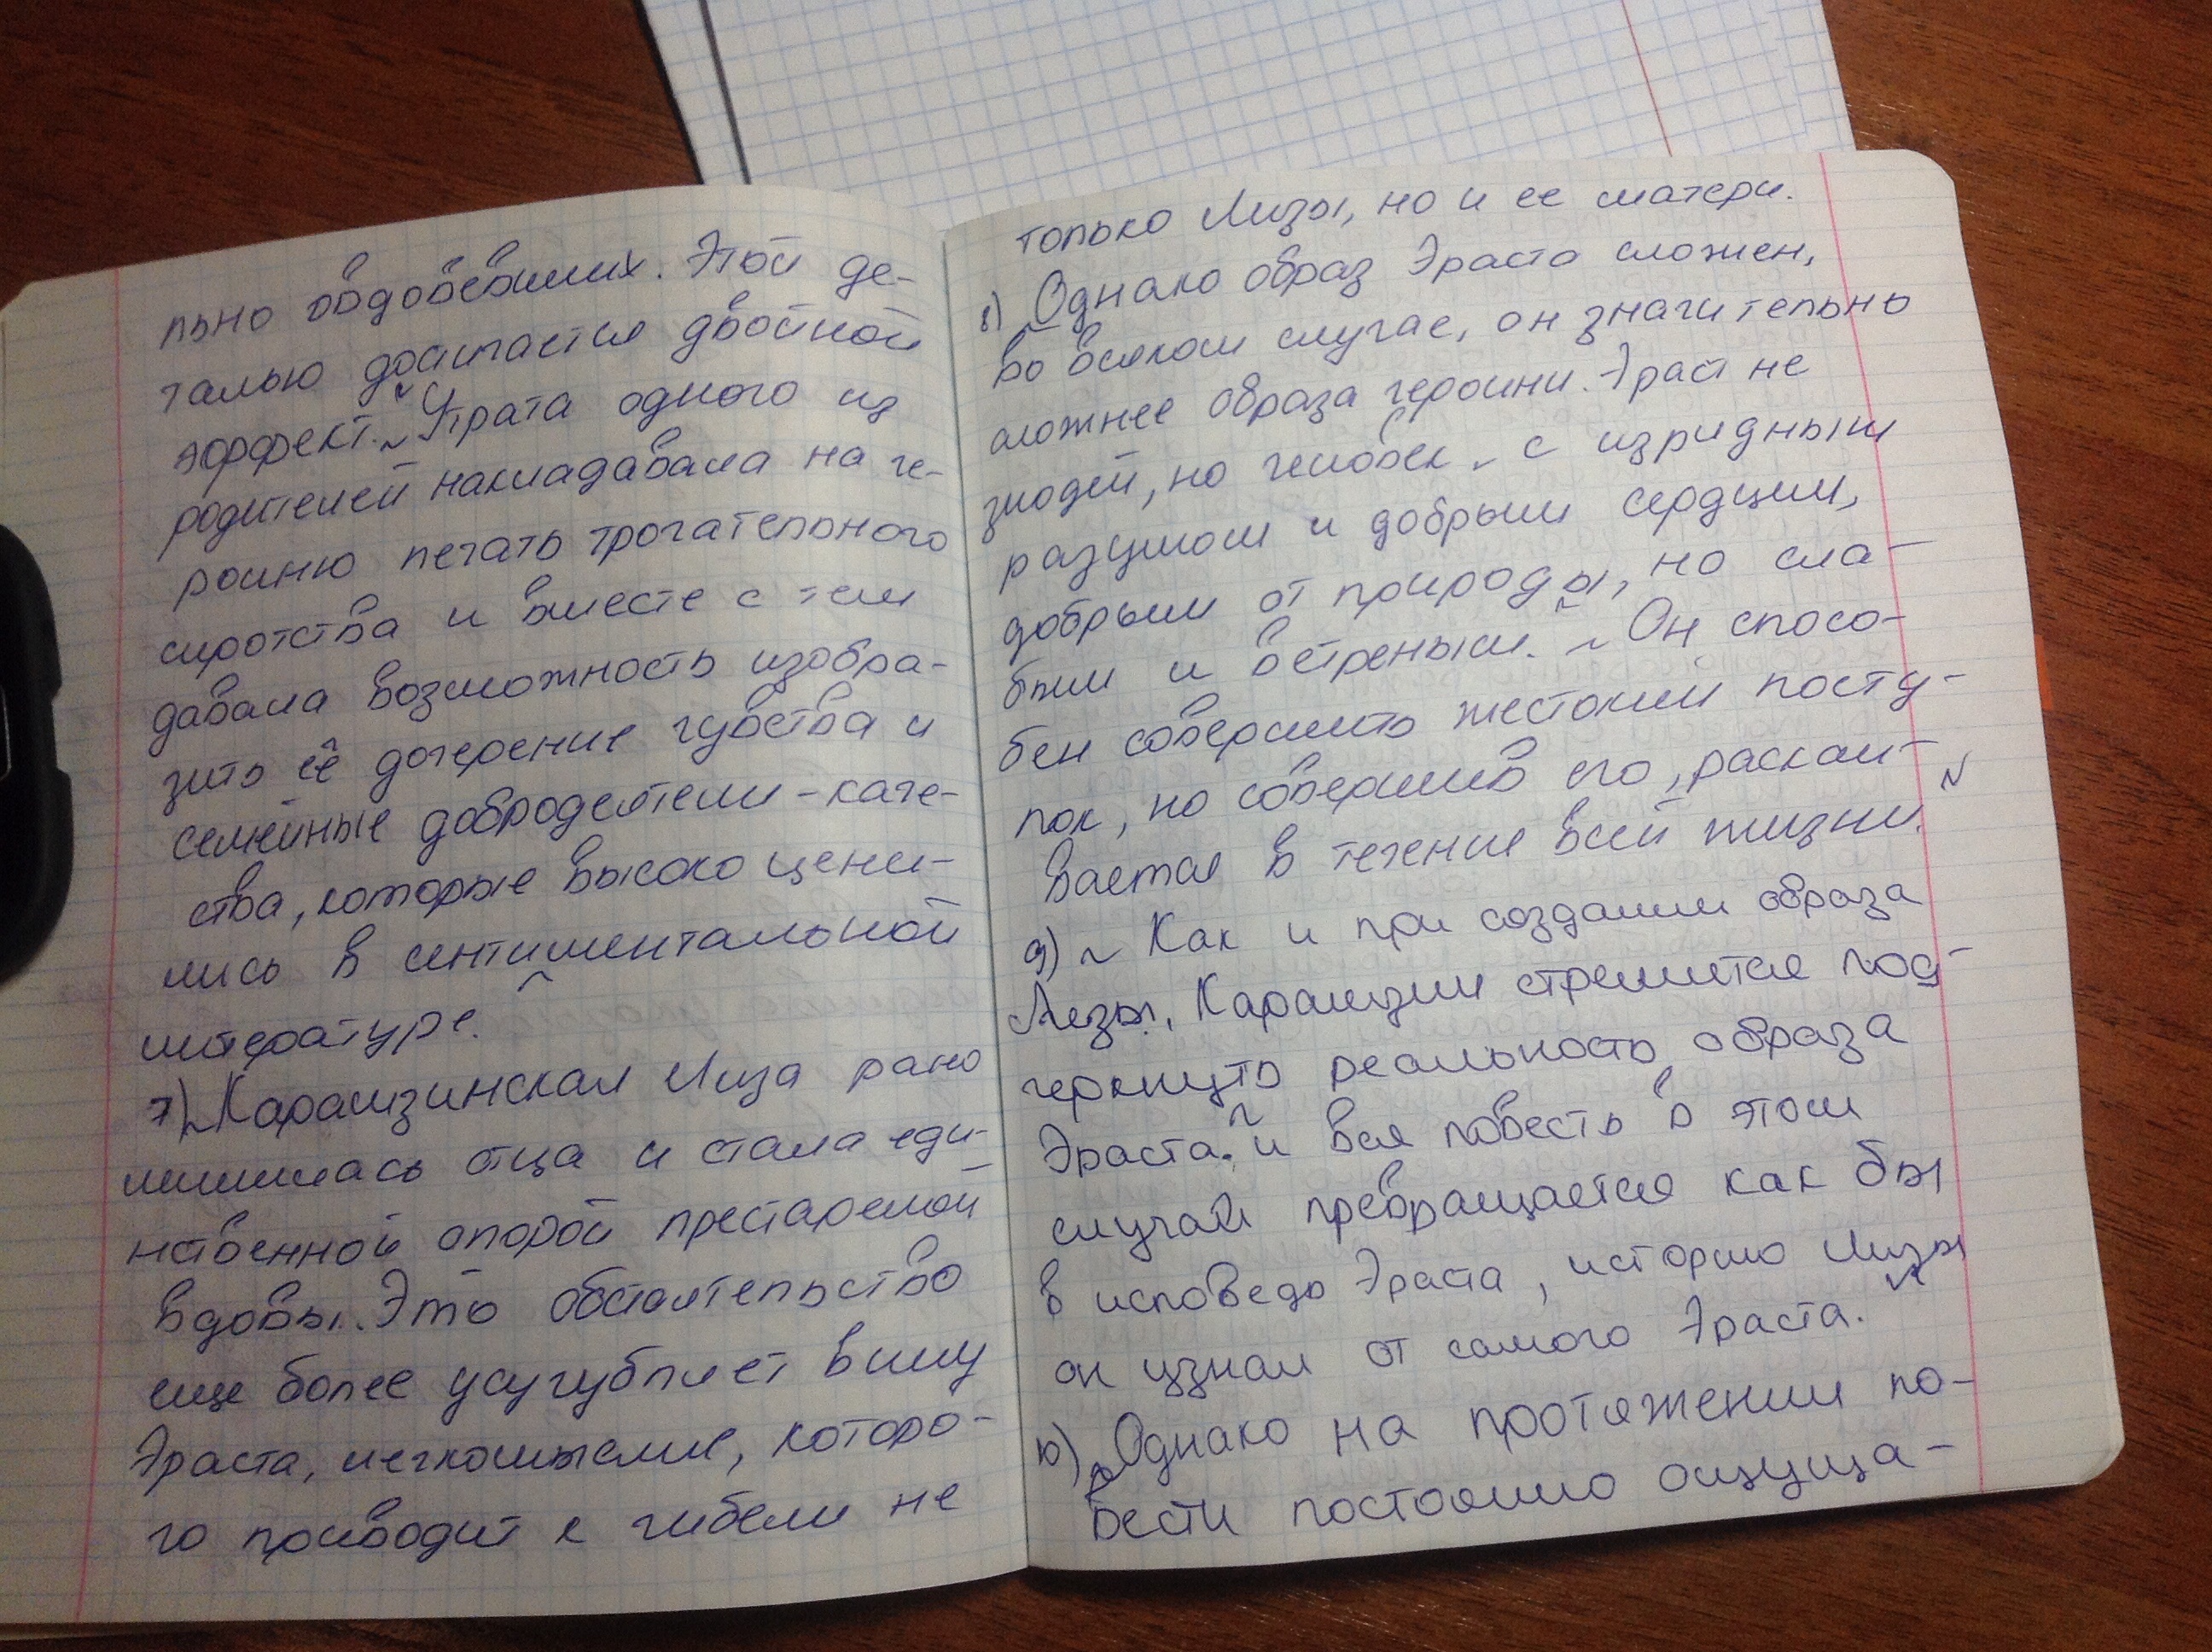 льно овдовевших. Этой де-
талью достигается двойной
эффект. ~ Утрата одного из
родителей накладавала на ге-
роиню печать трогательного
сиротства и вместе с тем
давала возможность изобра-
зить её дочерение чувства и
семейные добродетели - каче-
ства, которые высоко цени-
лись в сентиментальной
литературе.
7) ~ Карамзинская Лиза рано
лишилась отца и стала еди-
нственной опорой престарелой
вдовы. Это обстоятельство
еще более усугубляет вину
Эраста, легкомыслие, которо-
го приводит к гибели не
только Лизы, но и ее матери.
8) Однако образ Эраста сложен,
во всяком случае, он значительно
сложнее образа героини. Эраст не
злодей, но человек ~ с изридным
разумом и добрым сердцем,
добрым от природы, но сла-
бым и ветреным. ~ Он спосо-
бен совершить жестокий посту-
пок, но совершив его, раскаи-
вается в течение всей жизни.
9) ~ Как и при создании образа
Лизы, Карамзин стремится под-
черкнуть реальность образа
Эраста. и вся повесть в этом
случай превращается как бы
в исповедь Эраста, историю Лизы
он узнал от самого Эраста.
10) Однако на протяжении по-
вести постоянно ощуща-